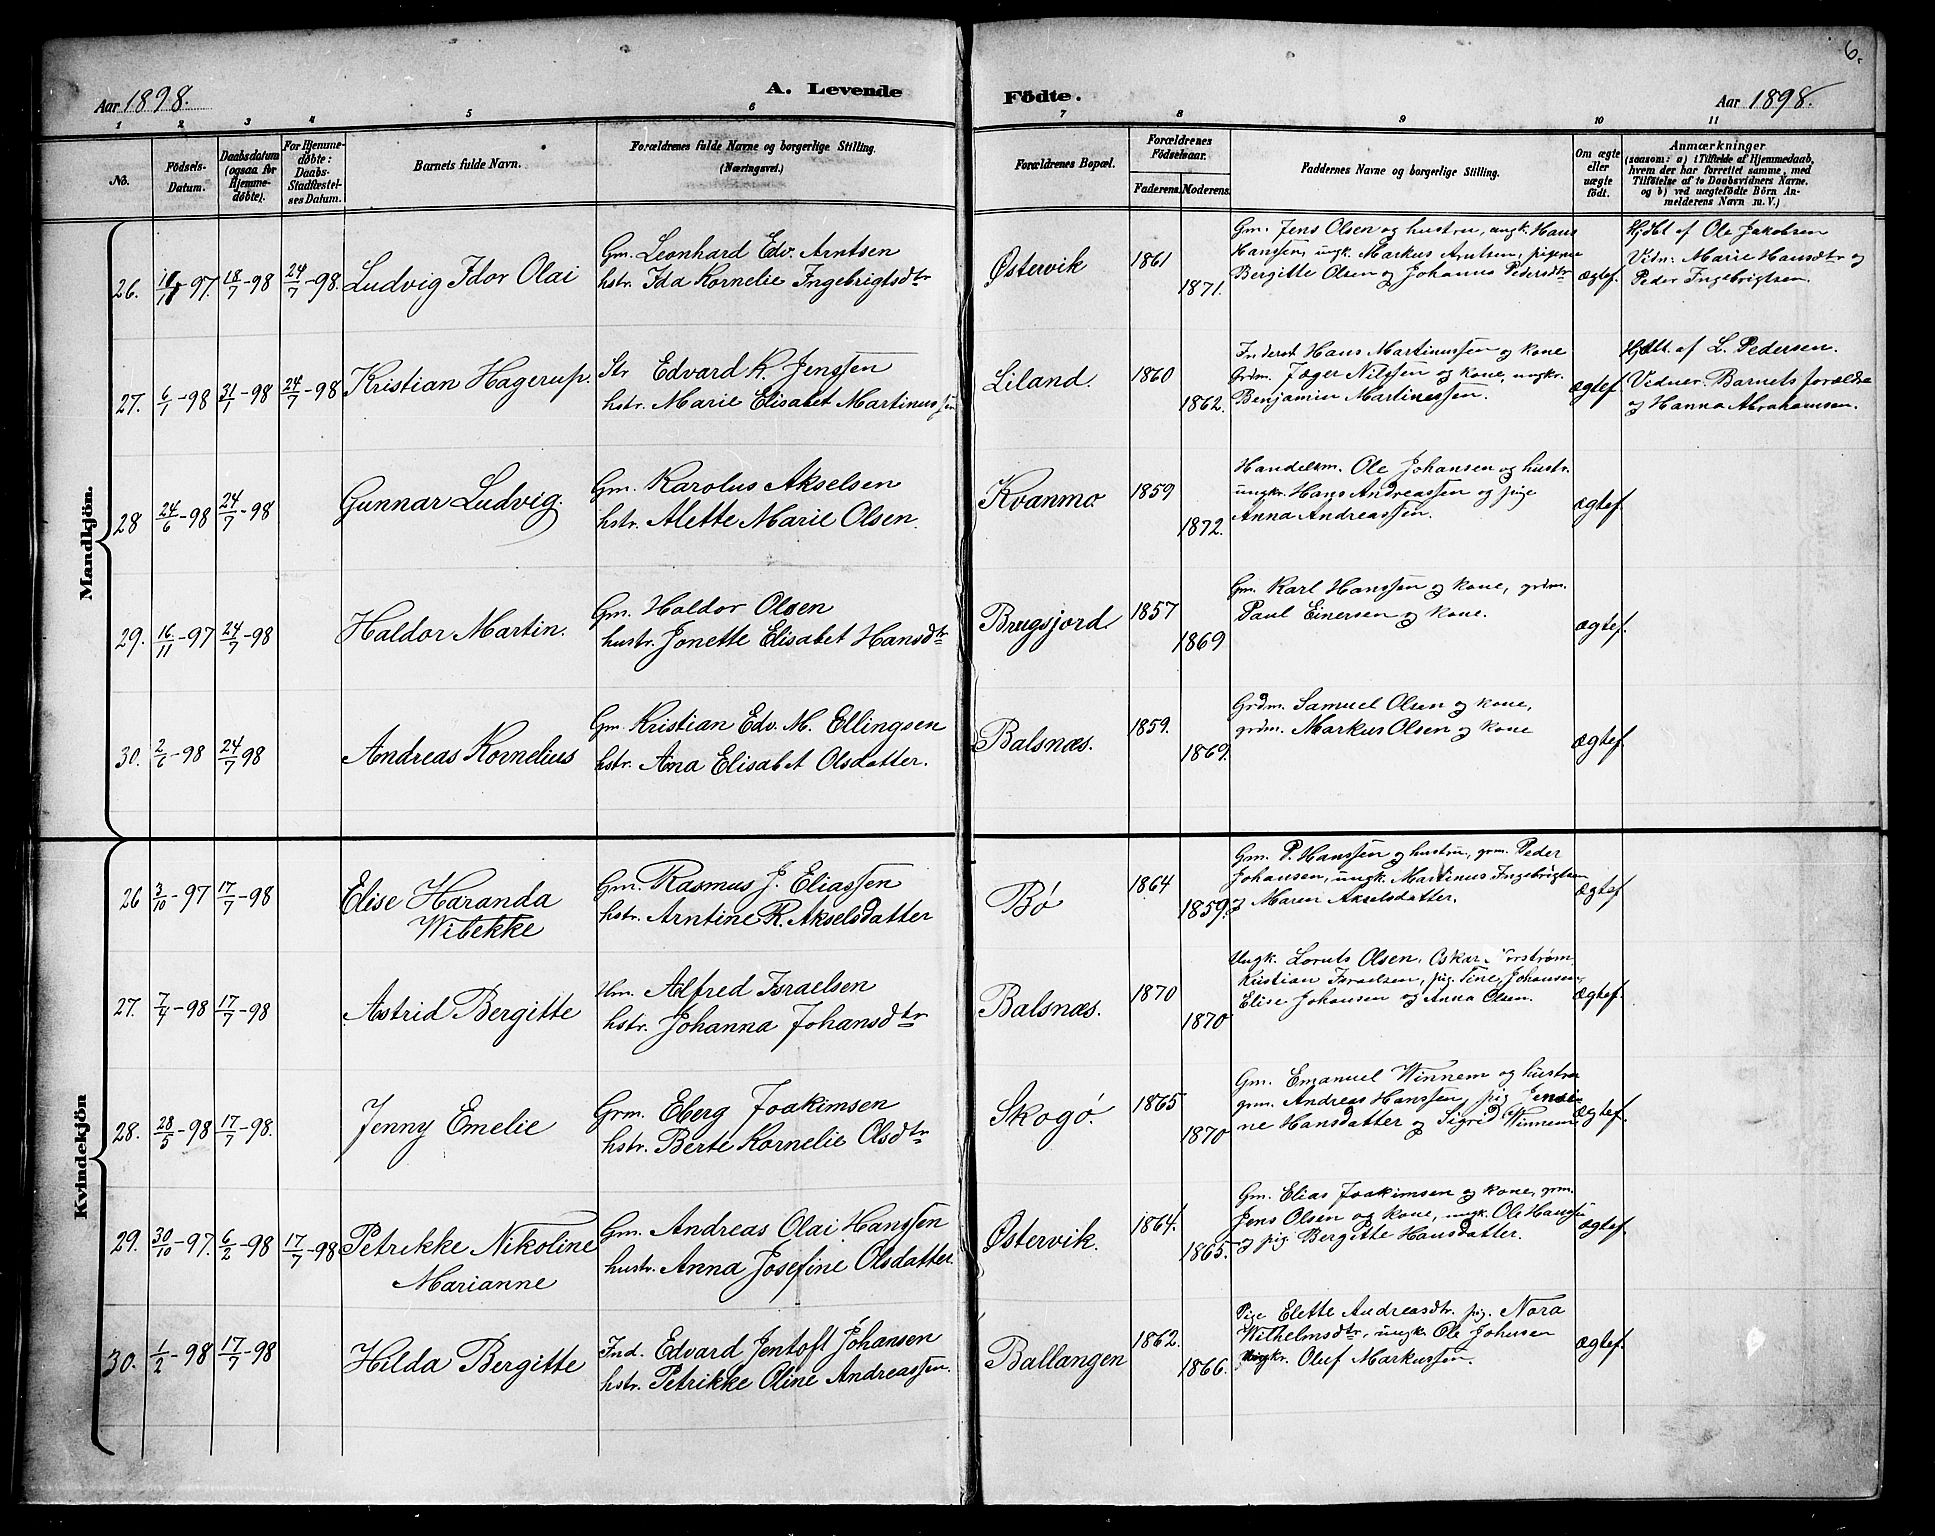 6.
Aar 1898.
A. Levende
Fødte.
Aar 1898.
1 2 3 4 5 6 7 8 9 10 11
No.
Fødsels-Datum.
Daabsdatum (ogsaa for Hjemme-døbte).
For Hjemme-døbte: Daabs-Stadfæstel-ses Datum.
Barnets fulde Navn.
Forældrenes fulde Navne og borgerlige Stilling.
(Næringsvei.)
Forældrenes Bopæl.
Forældrenes Fødselsaar.
Faderens. Moderens.
Faddernes Navne og borgerlige Stilling.
Om ægte eller uægte født.
Anmærkninger
(saasom: a) i Tilfælde af Hjemmedaab,
hvem der har forrettet samme, med
Tilføielse af to Daabsvidners Navne,
og b) ved uægtefødte Børn An-
melderens Navn m. V.)
Mandkjön.
26. 97. 18/7-98 24/7-98. Ludvig Idor Olai
Gm. Leonhard Edv. Arntsen
hstr. Ida Kornelie Ingebrigtsdtr
Østervik 1861 1871.
Gm. Jens Olsen og hustru, ungk. Hans
Hanssen, ungk. Markus Arntsen, pigerne
Bergitte Olsen og Johanna Pedersdtr
ægtef.
Hjdbt af Ole Jakobsen
Vidn. Marie Hansdtr og
Peder Ingebrigtsen.
27. 6/1-98 31/1-98 24/7-98 Kristian Hagerup.
Str Edvard K. Jenssen
hstr. Marie Elisabet Martinussen
Liland. 1860 1862.
Inderst Hans Martinussen og kone
Grdm. Jæger Nilssen og kone, ungkr.
Benjamin Martinussen.
ægtef
Hjdbt. af L. Pedersen.
Vidner. Barnets forældre
og Hanna Abrahamsen.
28 24/6-98 24/7-98 Gunnar Ludvig.
Gm. Karolus Akselsen
hstr. Alette Marie Olsen.
Kvanmo 1859 1872.
Handelsm. Ole Johansen og hustr.
ungkr. Hans Andreassen og pige
Anna Andreassen.
ægtef
29. 16/11-97 24/7-98 Haldor Martin.
Gm. Haldor Olsen
hustr. Jonette Elisabet Hansdtr
Brugsjord 1857 1869
Gm. Karl Hanssen og kone, grdm.
Paul Einersen og kone.
ægtef.
30. 2/6-98 24/7 98 Andreas Kornelius
Gm. Kristian Edv. M. Ellingsen
hstr. Ana Elisabet Olsdatter.
Balsnæs. 1859. 1869.
Grdm. Samuel Olsen og kone,
grdm. Markus Olsen og kone
ægtef.
Kvindekjön
26 3/10-97 17/7-98 Elise Haranda
Wibekke
Gm. Rasmus J. Eliassen
hstr. Arntine R. Akselsdatter
Bø 1864 1859.
Gm. P. Hanssen og hustru, grm. Peder
Johansen, ungk. Martinus Ingebrigtsen
og Maren Akselsdatter.
ægtef
27. 7/4-98 17/7-98 Astrid Bergitte
Hm. Alfred Israelsen
hstr. Johanna Johansdtr
Balsnæs. 1870 1870
Ungk. Loruts Olsen, Oskar
Kristian Israelsen, pig. Tine Johansen,
Elise Johansen og Anna Olsen.
ægtef.
28. 28/5-98 17/7-98. Jenny Emelie
Grm. Eberg Joakimsen
hstr. Berte Kornelie Olsdtr
Skogø. 1865 1870
Gm. Emanuel Winnem og hustru
grm. Andreas Hanssen, pig Jensi-
ne Hansdatter og Sigrid Winnem.
ægtef.
29. 30/10-97. 6/2-98 17/7-98 Petrikke Nikoline
Marianne
Gm. Andreas Olai Hanssen
hustr. Anna Josefine Olsdatter.
Østervik. 1864. 1865.
Gm. Elias Joakimsen og kone, grm.
Jens Olsen og kone, ungk. Ole Hansen
og pig Bergitte Hansdatter.
ægtef.
30. 1/2-98 17/7-98 Hilda Bergitte
Ind. Edvard Jentoft Johansen
hstr. Petrikke Oline Andreassen.
Ballangen 1862. 1866.
Pige Elette Andreasdtr. pig. Nora
Wilhelmsdtr, ungk. Ole Johnsen
ungkr. Oluf Markussen.
ægtef.